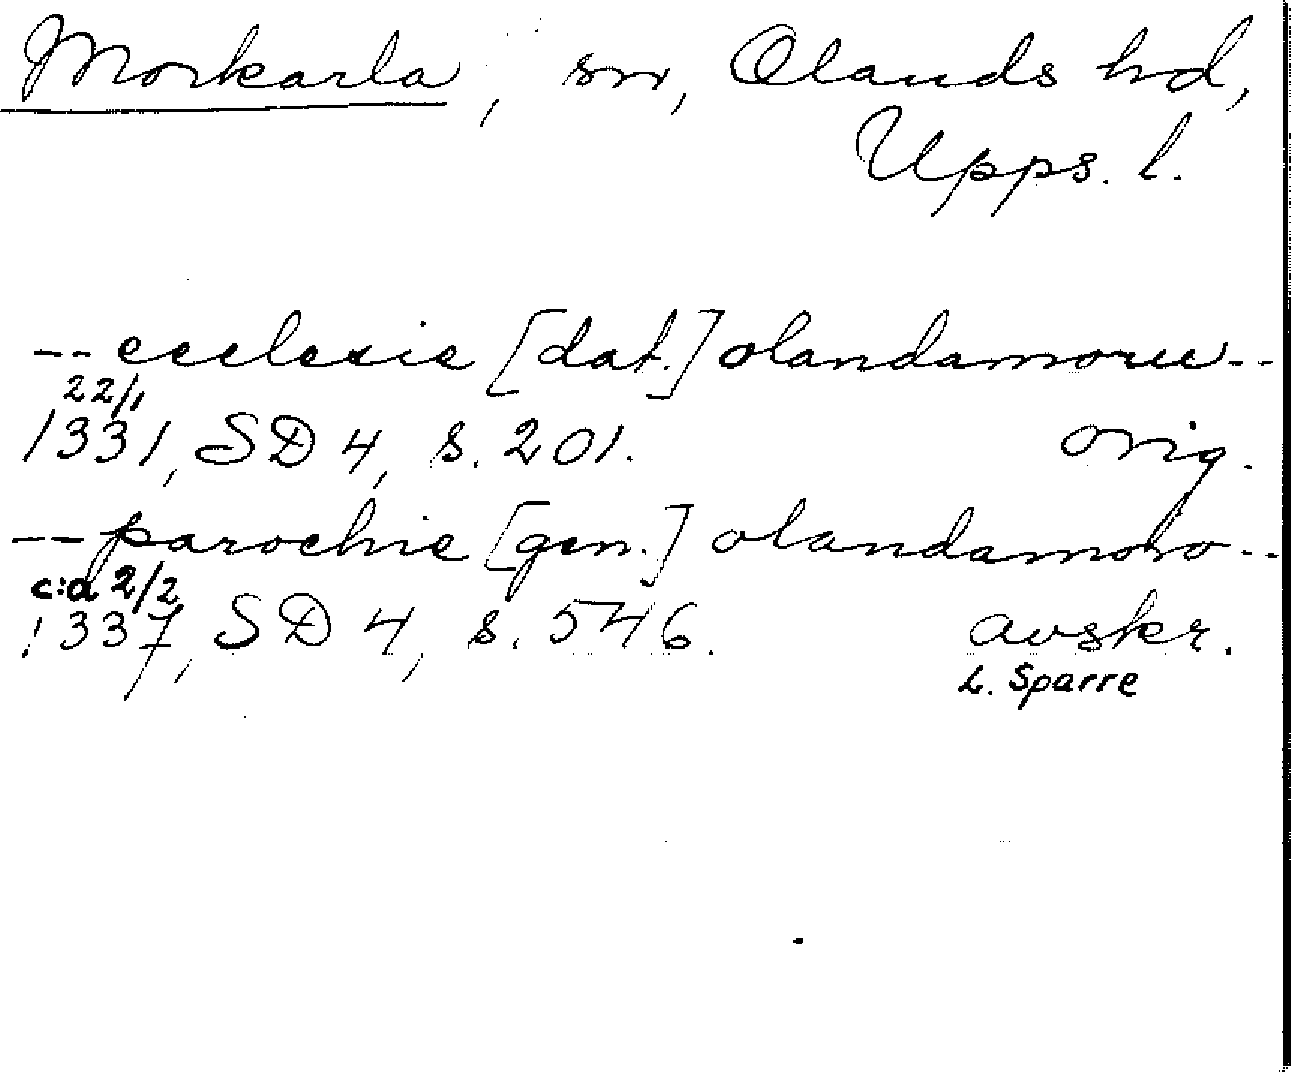 Morkarla, sn, Olands hd,
Upps. l.
-- ecclesie [dat.] olandamoree --
22/1
1331, SD 4, s. 201. orig.
-- parochie [gen.] olandamoro --
c:a 2/2
1337, SD 4, s. 546. avskr.
L. Sparre